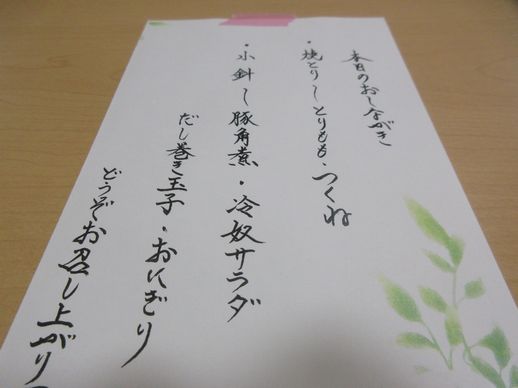 本日のおしながき
・焼とり～とりもも・つくね
・小鉢～豚角煮・冷奴サラダ
だし巻き玉子・おにぎり
どうぞお召し上がり